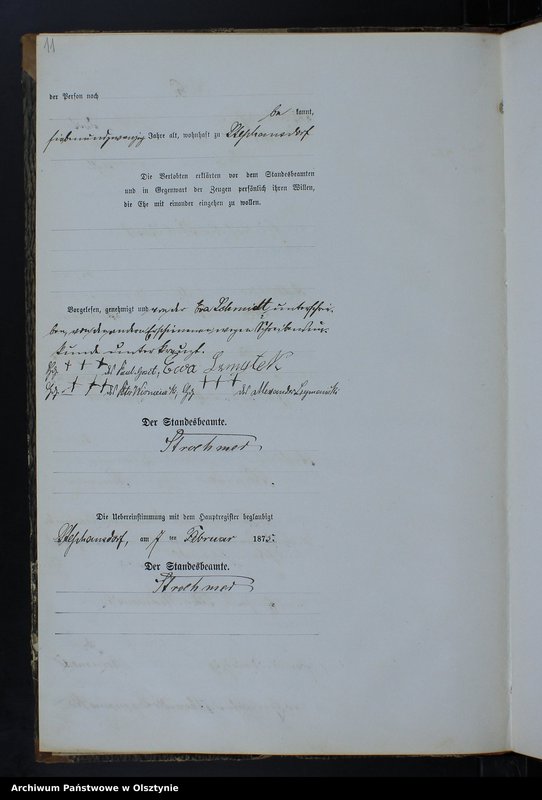 11
der Person nach
be kannt,
siebenundzwanzig Jahre alt, wohnhaft zu Stephansdorf
Die Verlobten erklärten vor dem Standesbeamten
und in Gegenwart der Zeugen persönlich ihren Willen,
die Ehe mit einander eingehen zu wollen.
Vorgelesen, genehmigt und von der Eva Schmidt unterschrie-
ben, von den anderen Erschienenen wegen Schreibensun-
kunde unterkreuzt.
+ + + des Ewa Szmytek
+ ++ des +++ des Alexander
Der Standesbeamte.
Stroehmer
Die Uebereinstimmung mit dem Hauptregister beglaubigt
Stephansdorf, am 7 ten Februar 1875.
Der Standesbeamte.
Stroehmer
Archiwum Państwowe w Olsztynie